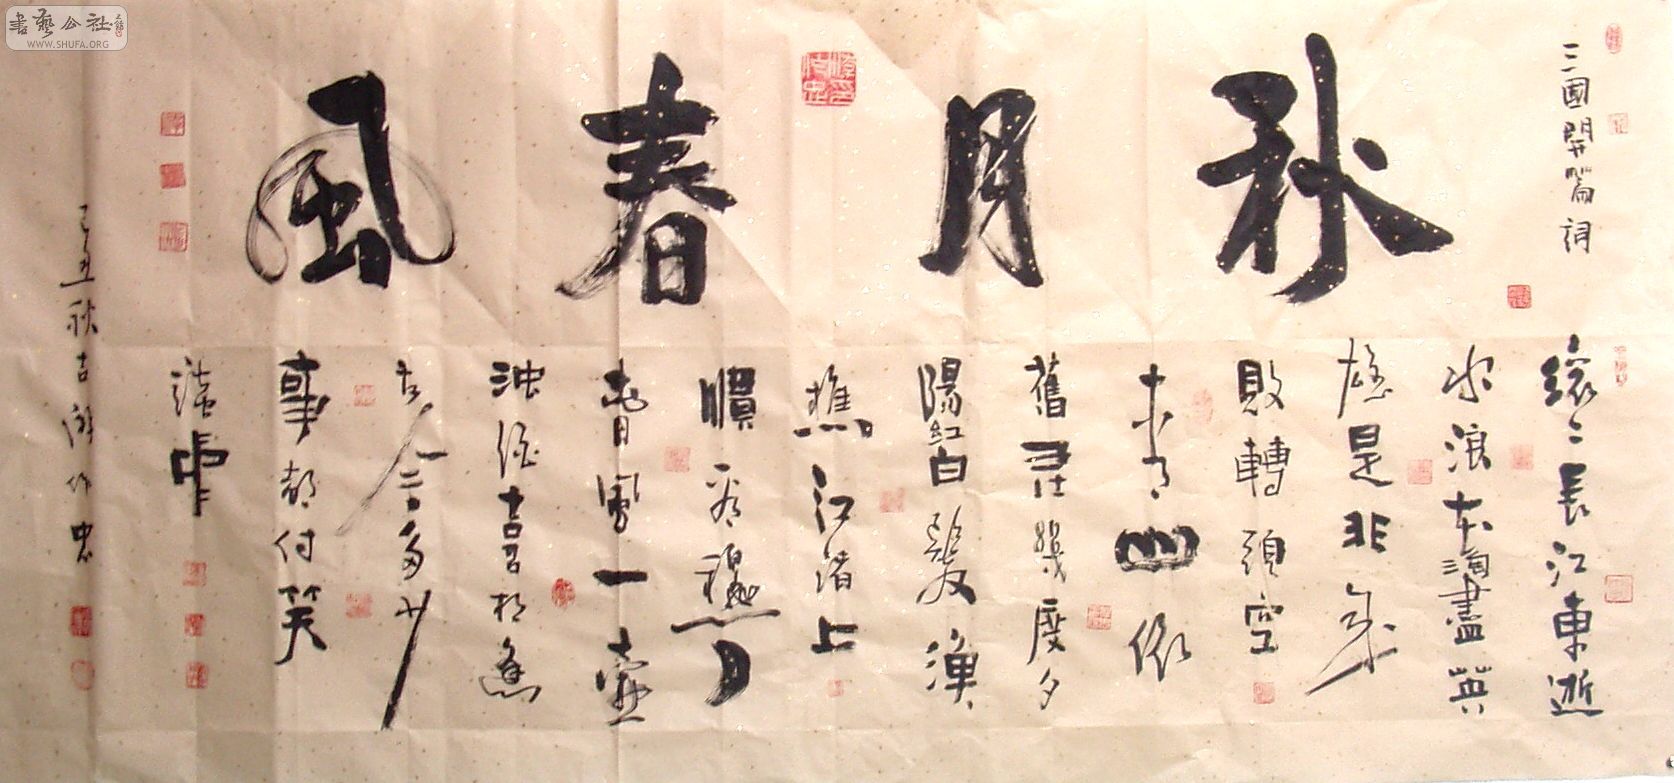 書藝公社
WWW.SHUFA.ORG
三國開篇詞
秋月春風
滾〻長江東逝
水浪花淘盡英
雄是非成
敗轉頭空
青山依
舊在幾度夕
陽紅白髮漁
樵江渚上
慣看秋月
春風一壺
濁酒喜相逢
古今多少
事都付笑
談中
己丑秋吉作忠